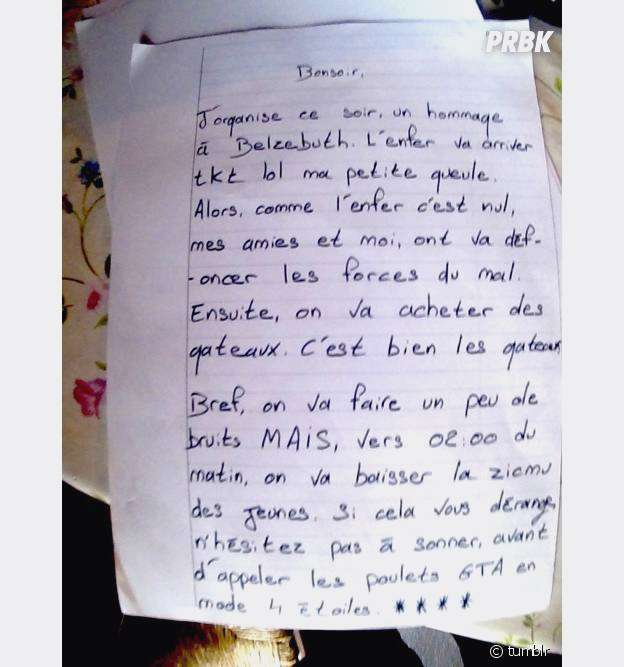 PRBK
Bonsoir,
J'organise ce soir, un hommage
à Belzebuth. L'enfer va arriver
tkt lol ma petite gueule.
Alors, comme l'enfer c'est nul,
mes amies et moi, ont va déf-
-oncer les forces du mal.
Ensuite, on va acheter des
gateaux. C'est bien les gateaux
Bref, on va faire un peu de
bruits MAiS, vers 02:00 du
matin, on va baisser la zicmu
des jeunes. Si cela vous dérange
n'hésitez pas à sonner, avant
d'appeler les poulets GTA en
mode 4 étoiles. ****
© tumblr